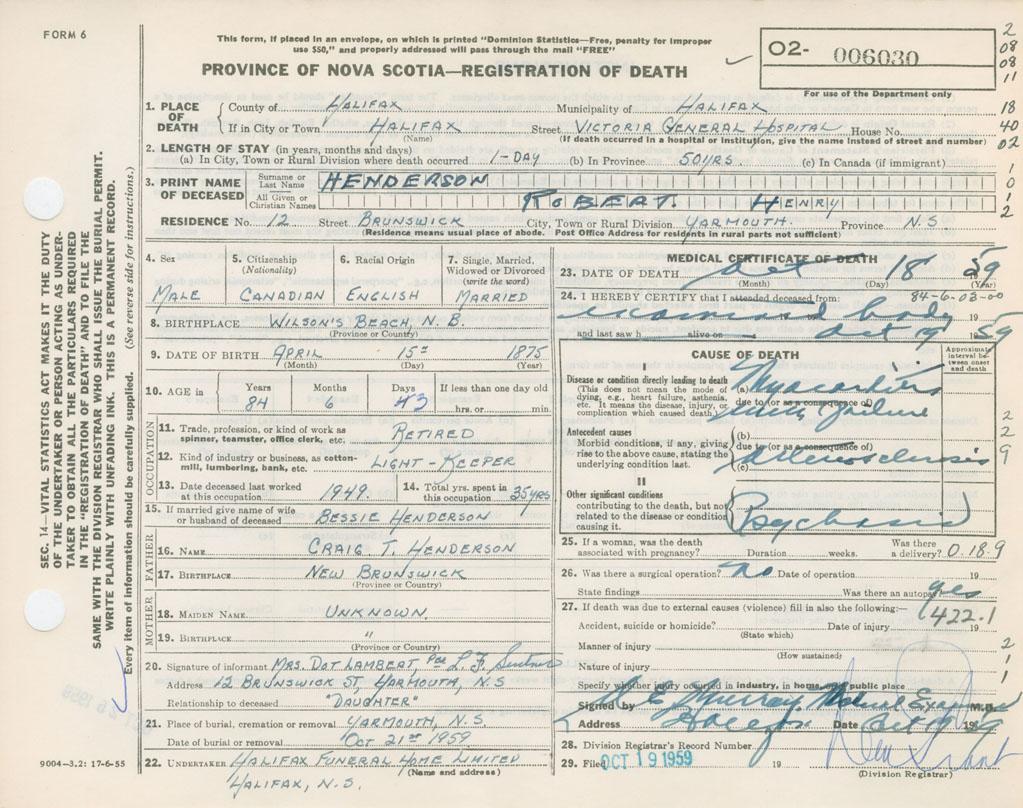 FORM 6
This form, if placed in an envelope, on which is printed "Dominion Statistics—Free, penalty for improper
use $50," and properly addressed will pass through the mail "FREE"
PROVINCE OF NOVA SCOTIA—REGISTRATION OF DEATH
O2- 006030
For use of the Department only
2
08
08
11
18
40
02
1. PLACE OF DEATH County of Halifax Municipality of Halifax
If in City or Town Halifax Street Victoria General Hospital House No.
(Name) (If death occurred in a hospital or institution, give the name instead of street and number)
2. LENGTH OF STAY (in years, months and days)
(a) In City, Town or Rural Division where death occurred 1-Day (b) In Province 50 yrs (c) In Canada (if immigrant)
3. PRINT NAME OF DECEASED Surname or Last Name HENDERSON
All Given or Christian Names ROBERT. HENRY
1
0
1
2
RESIDENCE No. 12 Street Brunswick City, Town or Rural Division Yarmouth. Province N.S
(Residence means usual place of abode. Post Office Address for residents in rural parts not sufficient)
4. Sex Male
5. Citizenship (Nationality) Canadian
6. Racial Origin English
7. Single, Married, Widowed or Divorced (write the word) Married
8. BIRTHPLACE Wilson's Beach, N.B.
(Province or Country)
9. DATE OF BIRTH April 15th 1875
(Month) (Day) (Year)
10. AGE in Years 84 Months 6 Days 3 If less than one day old hrs. or min.
OCCUPATION
11. Trade, profession, or kind of work as spinner, teamster, office clerk, etc. Retired
12. Kind of industry or business, as cotton-mill, lumbering, bank, etc. Light-Keeper
13. Date deceased last worked at this occupation 1949. 14. Total yrs. spent in this occupation 35 yrs
15. If married give name of wife or husband of deceased Bessie Henderson
FATHER
16. NAME Craig T. Henderson
17. BIRTHPLACE New Brunswick
(Province or Country)
MOTHER
18. MAIDEN NAME Unknown.
19. BIRTHPLACE "
(Province or Country)
20. Signature of informant Mrs. Dot Lambert, Per L. F.
Address 12 Brunswick St, Yarmouth, N.S
Relationship to deceased "Daughter"
21. Place of burial, cremation or removal Yarmouth, N.S.
Date of burial or removal Oct 21st 1959
22. UNDERTAKER Halifax Funeral Home Limited
(Name and address)
Halifax, N.S.
MEDICAL CERTIFICATE OF DEATH
23. DATE OF DEATH Oct 18 59
(Month) (Day) (Year)
24. I HEREBY CERTIFY that I attended deceased from: 84-6-03-00
examined body 19
and last saw h alive on Oct 19 1959
CAUSE OF DEATH
Approximate interval between onset and death
Disease or condition directly leading to death
(This does not mean the mode of dying, e.g., heart failure, asthenia, etc. It means the disease, injury, or complication which caused death.)
(a) Myocarditis
due to (or as a consequence of)
with failure
Antecedent causes
Morbid conditions, if any, giving rise to the above cause, stating the underlying condition last.
(b)
due to (or as a consequence of)
Arteriosclerosis
(c)
II
Other significant conditions
contributing to the death, but not related to the disease or condition causing it.
Psychosis
2
2
9
25. If a woman, was the death associated with pregnancy? Duration weeks. Was there a delivery? 0.18.9
26. Was there a surgical operation? no Date of operation 19
State findings Was there an autopsy yes
27. If death was due to external causes (violence) fill in also the following:—
422.1
Accident, suicide or homicide? Date of injury 19
(State which)
Manner of injury 2
(How sustained)
Nature of injury 1
Specify whether injury occurred in industry, in home, in public place 1
Signed by Murray Medical Examiner M.D.
Address Date Oct 19 1959
28. Division Registrar's Record Number
29. Filed OCT 19 1959 19
(Division Registrar)
SEC. 14—VITAL STATISTICS ACT MAKES IT THE DUTY
OF THE UNDERTAKER OR PERSON ACTING AS UNDER-
TAKER TO OBTAIN ALL THE PARTICULARS REQUIRED
IN THE "REGISTRATION OF DEATH" AND TO FILE THE
SAME WITH THE DIVISION REGISTRAR WHO SHALL ISSUE THE BURIAL PERMIT.
WRITE PLAINLY WITH UNFADING INK. THIS IS A PERMANENT RECORD.
Every item of information should be carefully supplied. (See reverse side for instructions.)
9004-3.2: 17-6-55